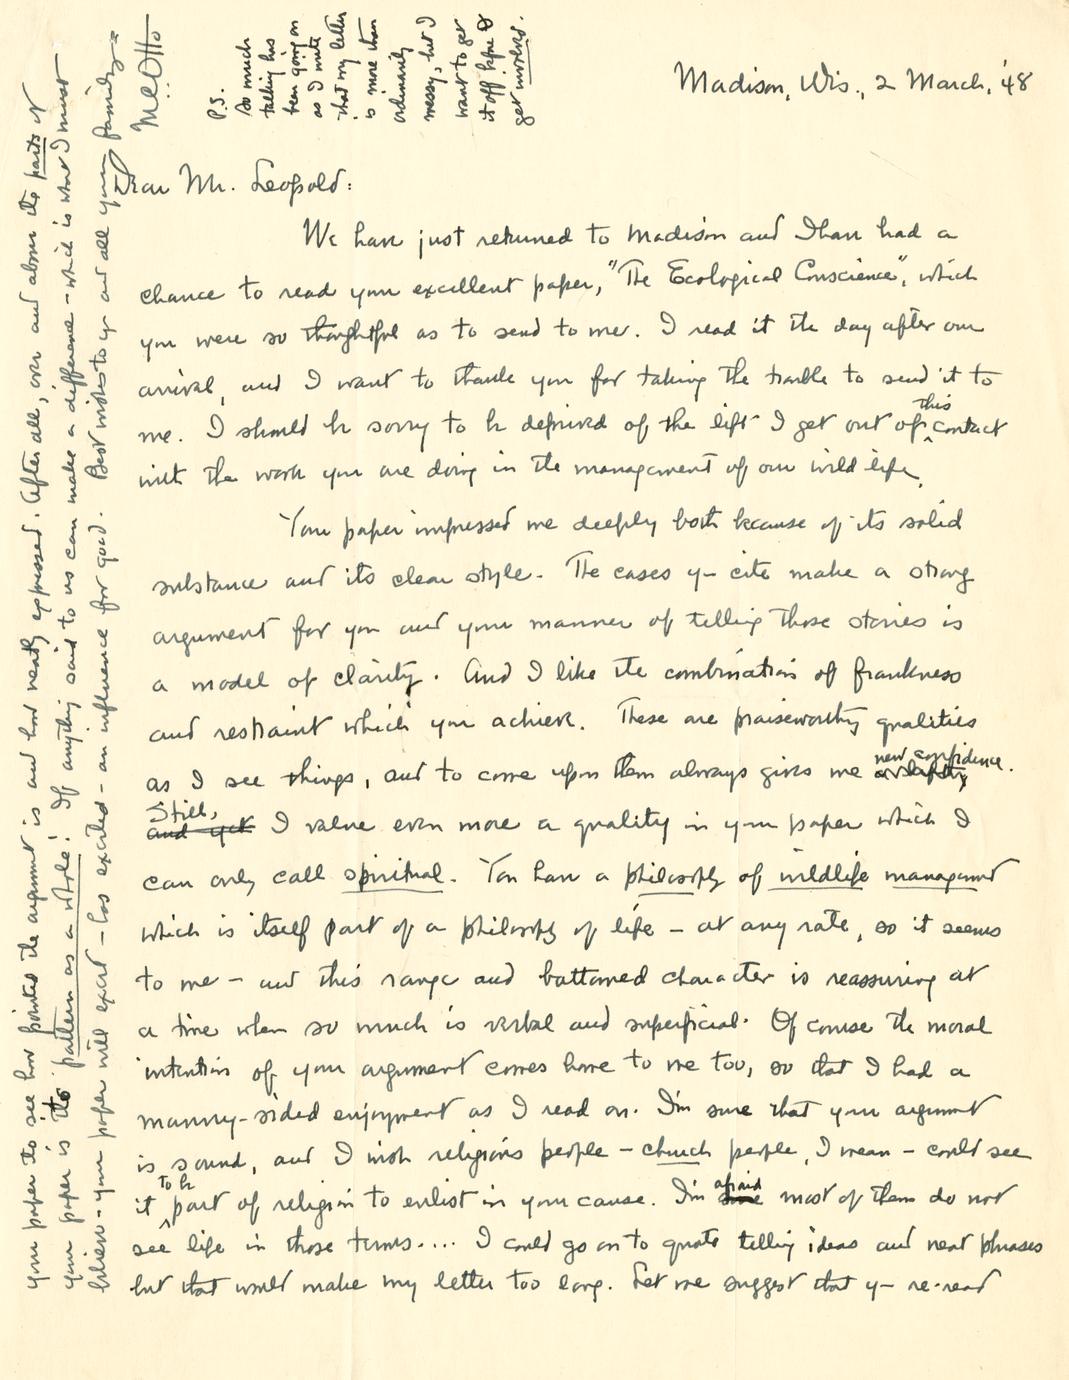 Madison, Wis., 2 March, '48
Dear Mr. Leopold:
We have just returned to Madison and I have had a
chance to read your excellent paper, "The Ecological Conscience", which
you were so thoughtful as to send to me. I read it the day after our
arrival, and I want to thank you for taking the trouble to send it to
me. I should be sorry to be deprived of the lift I get out of this contact
with the work you are doing in the management of our wild life.
Your paper impressed me deeply both because of its solid
substance and its clear style. The cases you cite make a strong
argument for you and your manner of telling those stories is
a model of clarity. And I like the combination of frankness
and restraint which you achieve. These are praiseworthy qualities
as I see things, and to come upon them always gives me new confidence.
Still, I value even more a quality in your paper which I
can only call spiritual. You have a philosophy of wildlife management
which is itself part of a philosophy of life – at any rate, so it seems
to me – and this range and bottomed character is reassuring at
a time when so much is verbal and superficial. Of course the moral
intention of your argument comes home to me too, so that I had a
manny-sided enjoyment as I read on. I'm sure that your argument
is sound, and I wish religious people – church people, I mean – could see
it to be part of religion to enlist in your cause. I'm afraid most of them do not
see life in those terms.... I could go on to quote telling ideas and neat phrases
but that would make my letter too long. Let me suggest that you re-read
your paper to see how pointed the argument is and how neatly expressed. After all, over and above the parts of
your paper is the pattern as a whole! If anything said to us can make a difference – which is what I must
believe – your paper will exert – has exerted – an influence for good. Best wishes to you and all your family =
M.C. Otto
P.S.
So much
talking has
been going on
as I write
that my letter
is more than
ordinarily
messy, but I
want to get
it off before I
get involved.